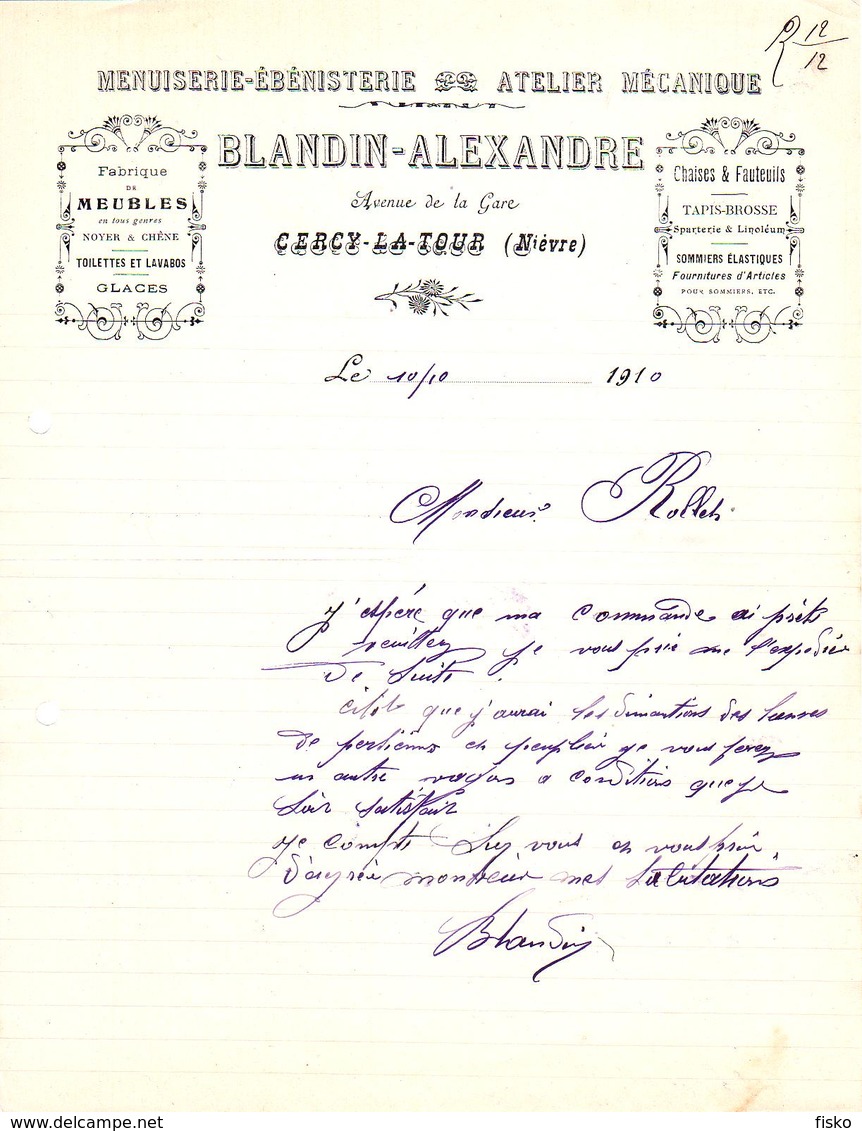 R 12/12
MENUISERIE-ÉBÉNISTERIE ATELIER MÉCANIQUE
BLANDIN-ALEXANDRE
Avenue de la Gare
CERCY-LA-TOUR (Nièvre)
Fabrique
DE
MEUBLES
en tous genres
NOYER & CHÊNE
TOILETTES ET LAVABOS
GLACES
Chaises & Fauteuils
TAPIS-BROSSE
Sparterie & Linoléum
SOMMIERS ÉLASTIQUES
Fournitures d'Articles
POUR SOMMIERS, ETC.
Le 10/10 1910
Monsieur Rollet
J'espère que ma commande ai prête
veuillez je vous prie me l'expedier
De suite.
que j'aurai les des
De en peuplier je vous ferez
un autre wagons a conditions que je
soir satisfair
Je compte sur vous en vous prie
D'agrée monsieur mes salutations
Blandin
delcampe.net
fisko